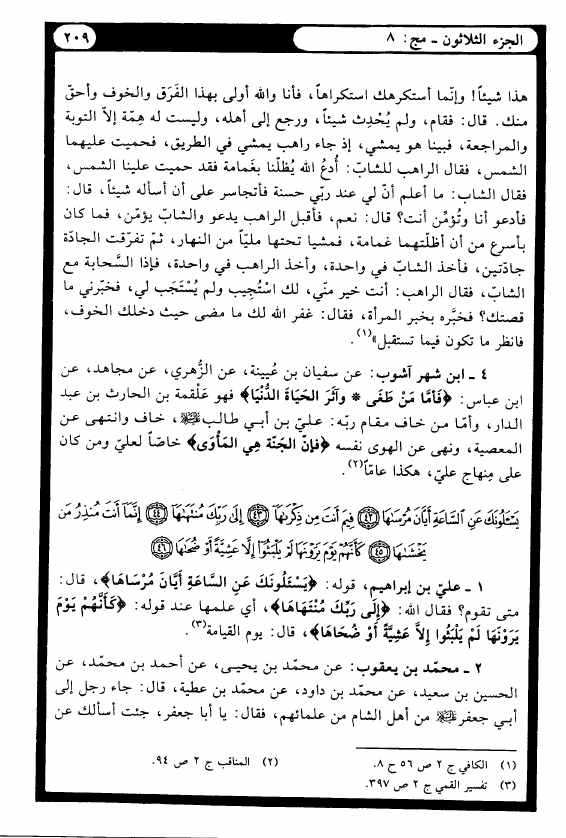 الجزء الثلاثون ـ مج: ٨
٢٠٩
هذا شيئاً! وإنّما أستكرهك استكراهاً، فأنا والله أولى بهذا الفَرَق والخوف وأحقّ
منك. قال: فقام، ولم يُحْدِث شيئاً، ورجع إلى أهله، وليست له هِمّة إلاّ التوبة
والمراجعة، فبينا هو يمشي، إذ جاء راهب يمشي في الطريق، فحميت عليهما
الشمس، فقال الراهب للشابّ: أُدعُ الله يُظلّنا بغَمامة فقد حميت علينا الشمس،
فقال الشاب: ما أعلم أنّ لي عند ربّي حسنة فأتجاسر على أن أسأله شيئاً، قال:
فأدعو أنا وتُؤمِّن أنت؟ قال: نعم، فأقبل الراهب يدعو والشابّ يؤمّن، فما كان
بأسرع من أن أظلّتهما غمامة، فمشيا تحتها مليّاً من النهار، ثمّ تفرّقت الجادّة
جادّتين، فأخذ الشابّ في واحدة، وأخذ الراهب في واحدة، فإذا السَّحابة مع
الشابّ، فقال الراهب: أنت خير منّي، لك اسْتُجِيب ولم يُستَجَب لي، فخبّرني ما
قصتك؟ فخبَّره بخبر المرأة، فقال: غفر الله لك ما مضى حيث دخلك الخوف،
فانظر ما تكون فيما تستقبل»(١).
٤ ـ ابن شهر آشوب: عن سفيان بن عُيينة، عن الزُّهري، عن مجاهد، عن
ابن عباس: ﴿فَأمَّا مَنْ طَغَى * وآثَرَ الحَيَاةَ الدُّنْيَا﴾ فهو عَلْقمة بن الحارث بن عبد
الدار، وأمّا من خاف مقام ربّه: عليّ بن أبي طالب عليه السلام، خاف وانتهى عن
المعصية، ونهى عن الهوى نفسه ﴿فإنّ الجَنَّة هِي المَأْوَى﴾ خاصّاً لعليّ ومن كان
على مِنهاج عليّ، هكذا عامّاً(٢).
يَسْـَٔلُونَكَ عَنِ السَّاعَةِ أَيَّانَ مُرْسَىٰهَا ﴿٤٢﴾ فِيمَ أَنتَ مِن ذِكْرَىٰهَا ﴿٤٣﴾ إِلَىٰ رَبِّكَ مُنتَهَىٰهَا ﴿٤٤﴾ إِنَّمَا أَنتَ مُنذِرُ مَن
يَخْشَىٰهَا ﴿٤٥﴾ كَأَنَّهُمْ يَوْمَ يَرَوْنَهَا لَمْ يَلْبَثُوٓا إِلَّا عَشِيَّةً أَوْ ضُحَىٰهَا ﴿٤٦﴾
١ ـ عليّ بن إبراهيم، قوله: ﴿يَسْئَلُونَكَ عَنِ السَّاعَةِ أَيَّانَ مُرْسَاهَا﴾، قال:
متى تقوم؟ فقال الله: ﴿إلَى رَبِّكَ مُنْتَهَاهَا﴾، أي علمها عند قوله: ﴿كَأَنَّهُمْ يَوْمَ
يَرَوْنَهَا لَمْ يَلْبَثُوا إلاَّ عَشِيَّةً أَوْ ضُحَاهَا﴾، قال: يوم القيامة(٣).
٢ ـ محمّد بن يعقوب: عن محمّد بن يحيى، عن أحمد بن محمّد، عن
الحسين بن سعيد، عن محمّد بن داود، عن محمّد بن عطية، قال: جاء رجل إلى
أبي جعفر عليه السلام من أهل الشام من علمائهم، فقال: يا أبا جعفر، جئت أسألك عن
(١) الكافي ج ٢ ص ٥٦ ح ٨.
(٢) المناقب ج ٢ ص ٩٤.
(٣) تفسير القمي ج ٢ ص ٣٩٧.